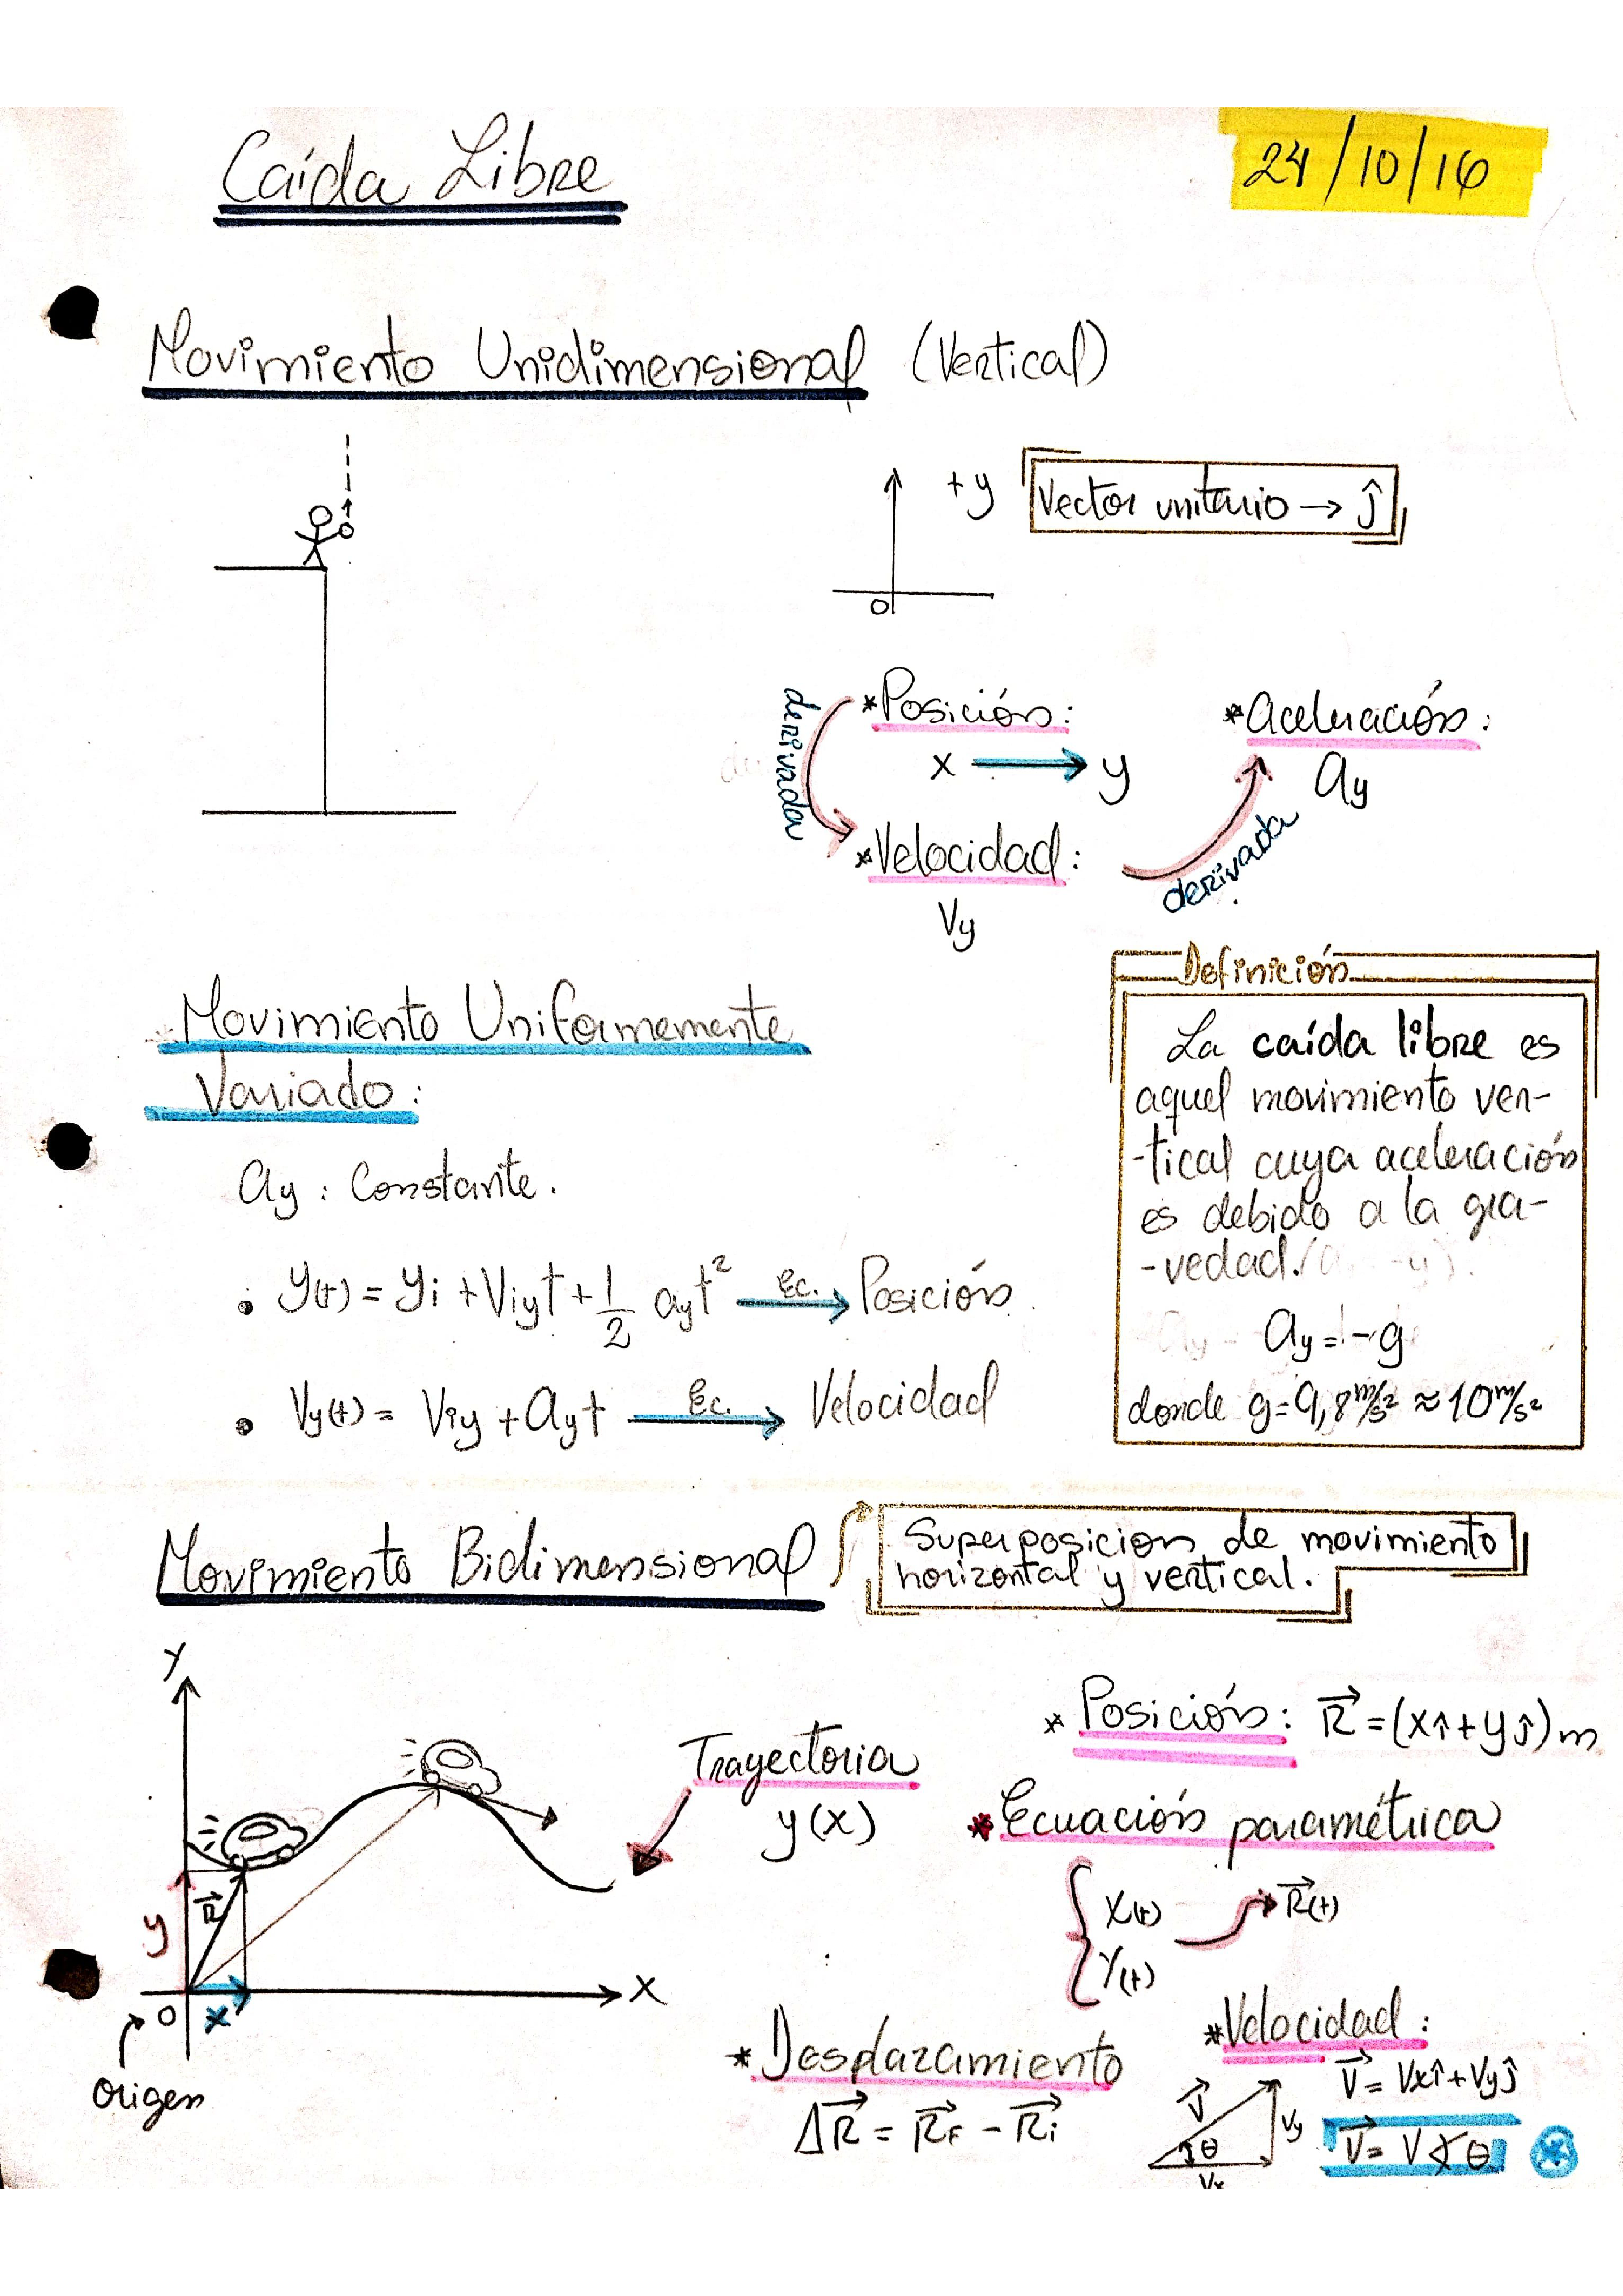 Caída Libre
24/10/16
Movimiento Unidimensional (Vertical)
+y
Vector unitario → ĵ
0
*Posición:
x → y
derivada
*Velocidad:
Vy
derivada
*Aceleración:
ay
Movimiento Uniformemente
Variado:
ay : Constante.
• y(t) = yi + Viyt + 1/2 ayt² Ec.→ Posición
• Vy(t) = Viy + ayt Ec.→ Velocidad
Definición
La caída libre es
aquel movimiento ver-
-tical cuya aceleración
es debido a la gra-
-vedad.
ay = -g
donde g = 9,8 m/s² ≈ 10 m/s²
Movimiento Bidimensional
Superposicion de movimiento
horizontal y vertical.
Y
R⃗
y
0
x
X
Origen
Trayectoria
y(x)
* Posición: R⃗ = (xî + yĵ) m
* Ecuación paramétrica
{ X(t)
Y(t)
R⃗(t)
* Desplazamiento
ΔR⃗ = R⃗F - R⃗i
*Velocidad:
V⃗
θ
Vy
Vx
V⃗ = Vxî + Vyĵ
V⃗ = V ∡ θ
*